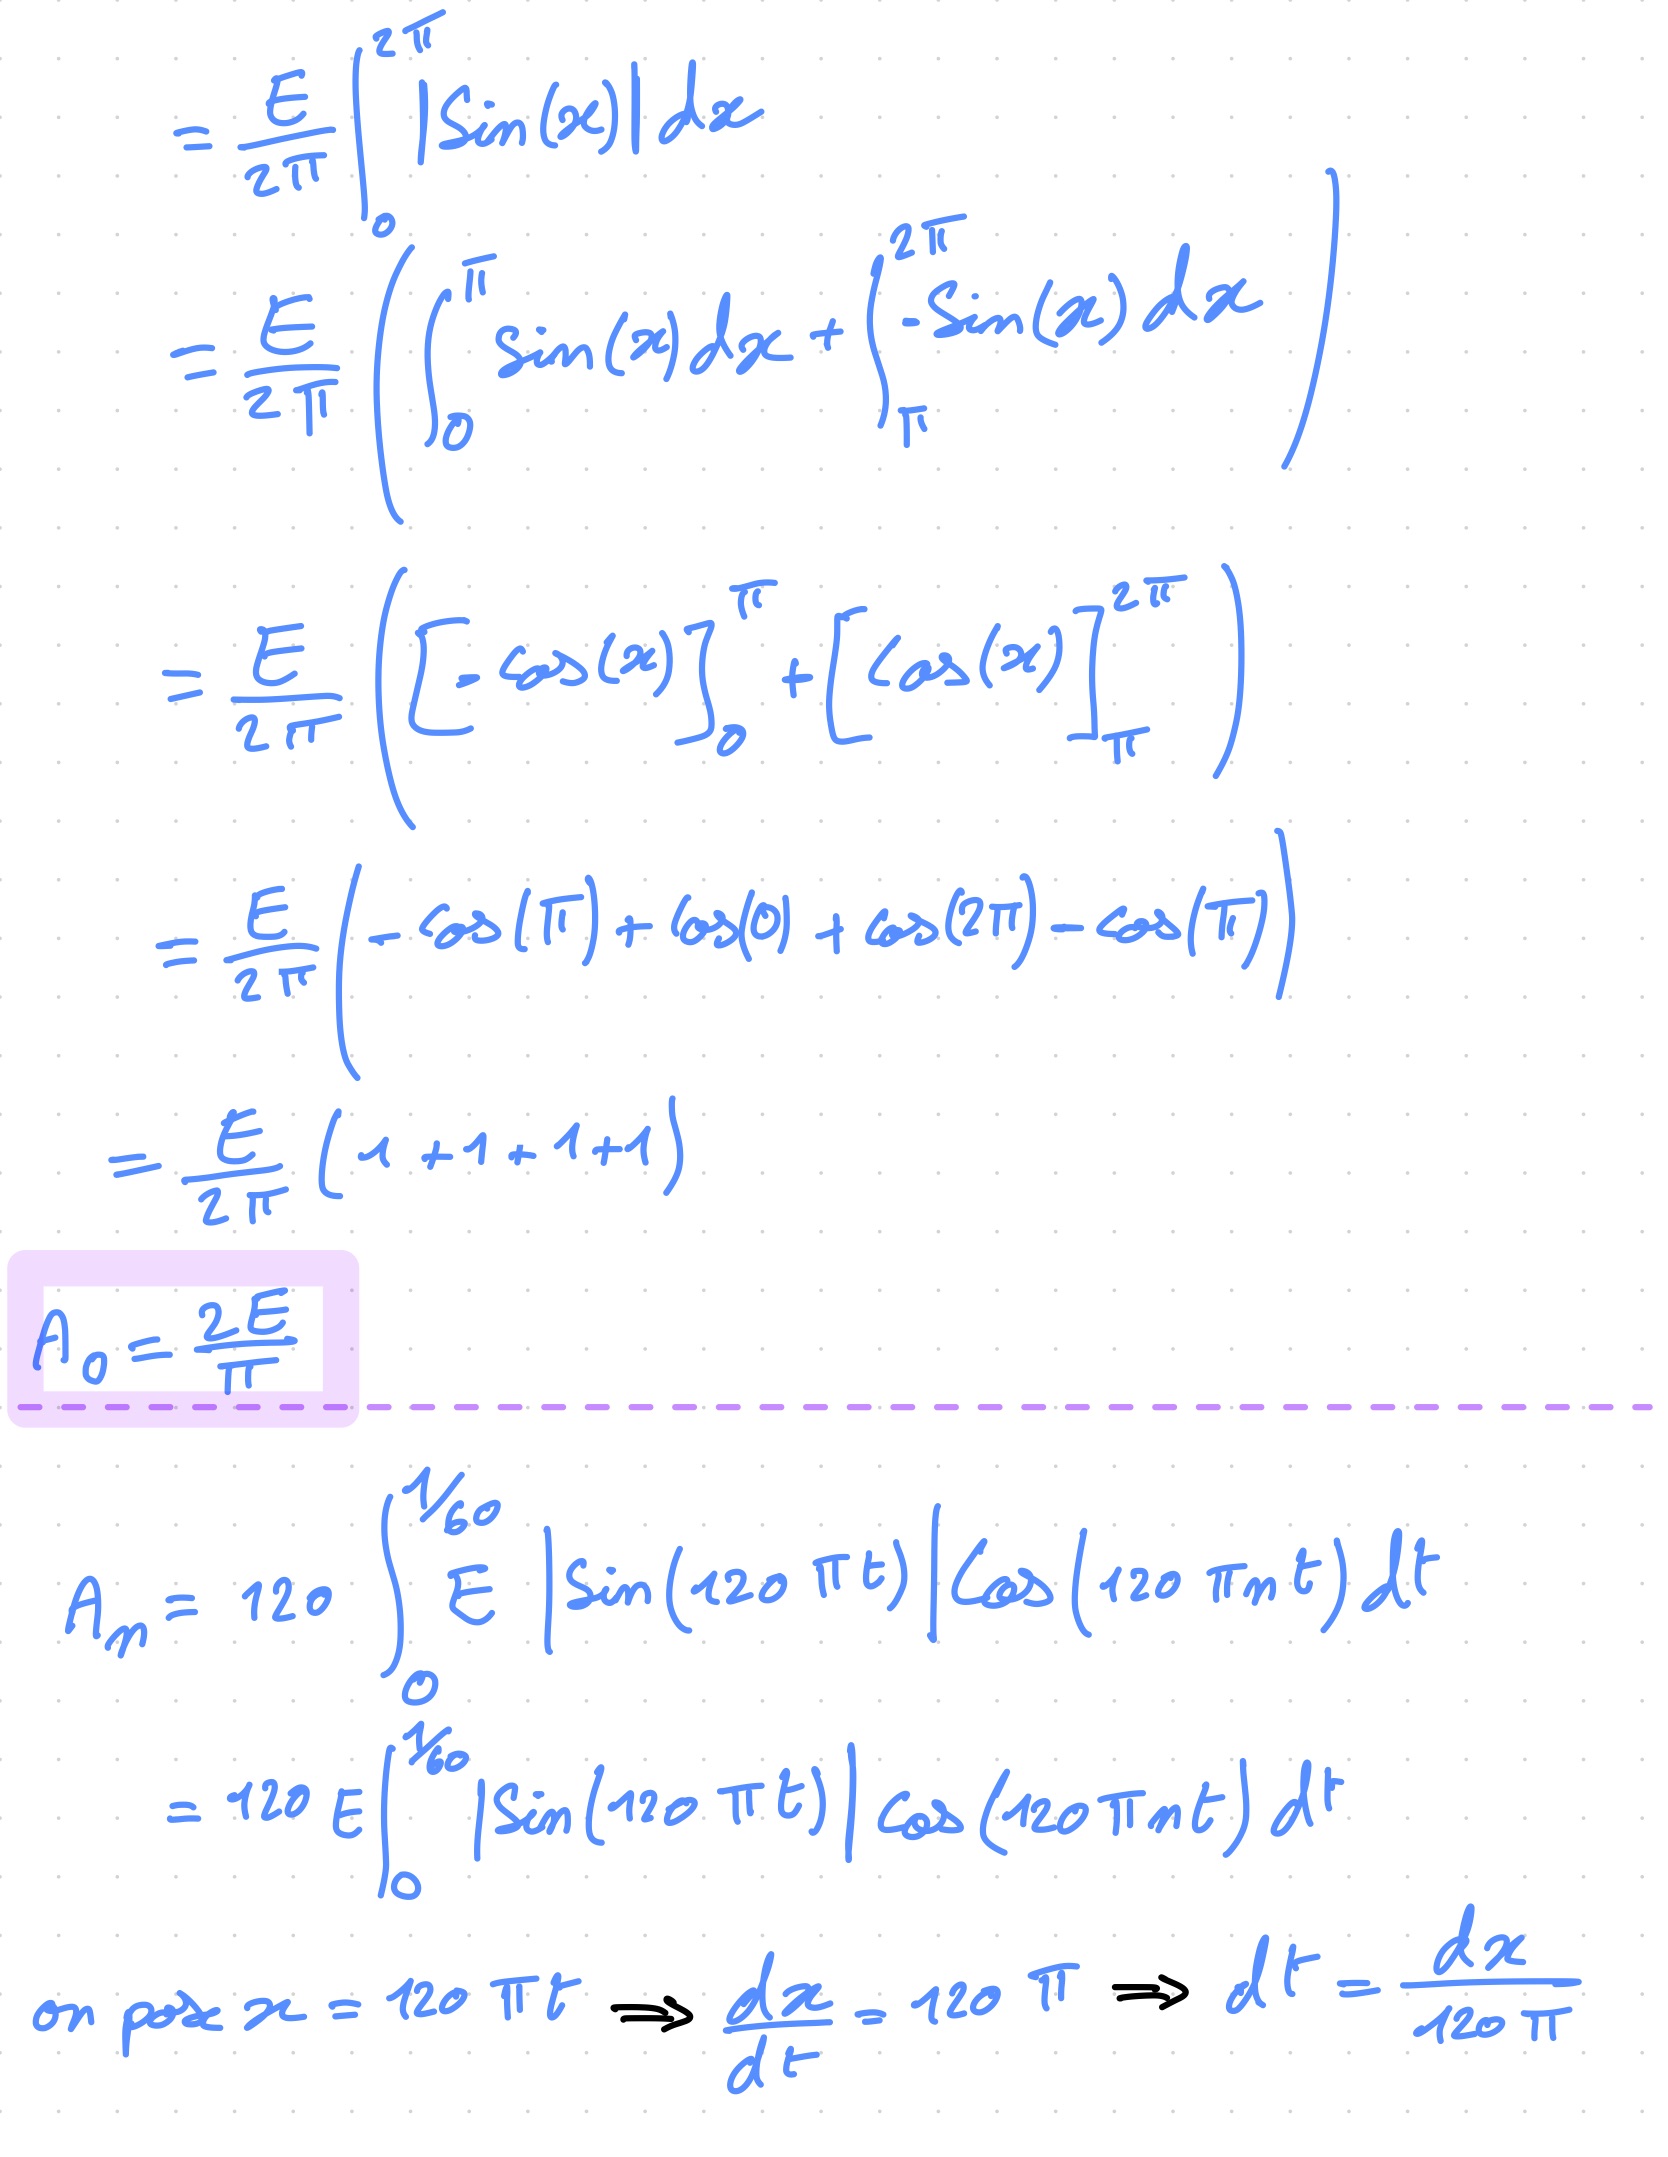 = E/2π ∫₀^2π |Sin(x)| dx
= E/2π ( ∫₀^π sin(x) dx + ∫_π^2π -Sin(x) dx )
= E/2π ( [-cos(x)]₀^π + [cos(x)]_π^2π )
= E/2π ( - cos(π) + cos(0) + cos(2π) - cos(π) )
= E/2π (1 + 1 + 1 + 1)
A₀ = 2E/π
Aₙ = 120 ∫₀^1/60 E |Sin(120 πt)| Cos(120 πnt) dt
= 120 E ∫₀^1/60 |Sin(120 πt)| Cos(120 πnt) dt
on pose x = 120 πt ⇒ dx/dt = 120 π ⇒ dt = dx/120 π